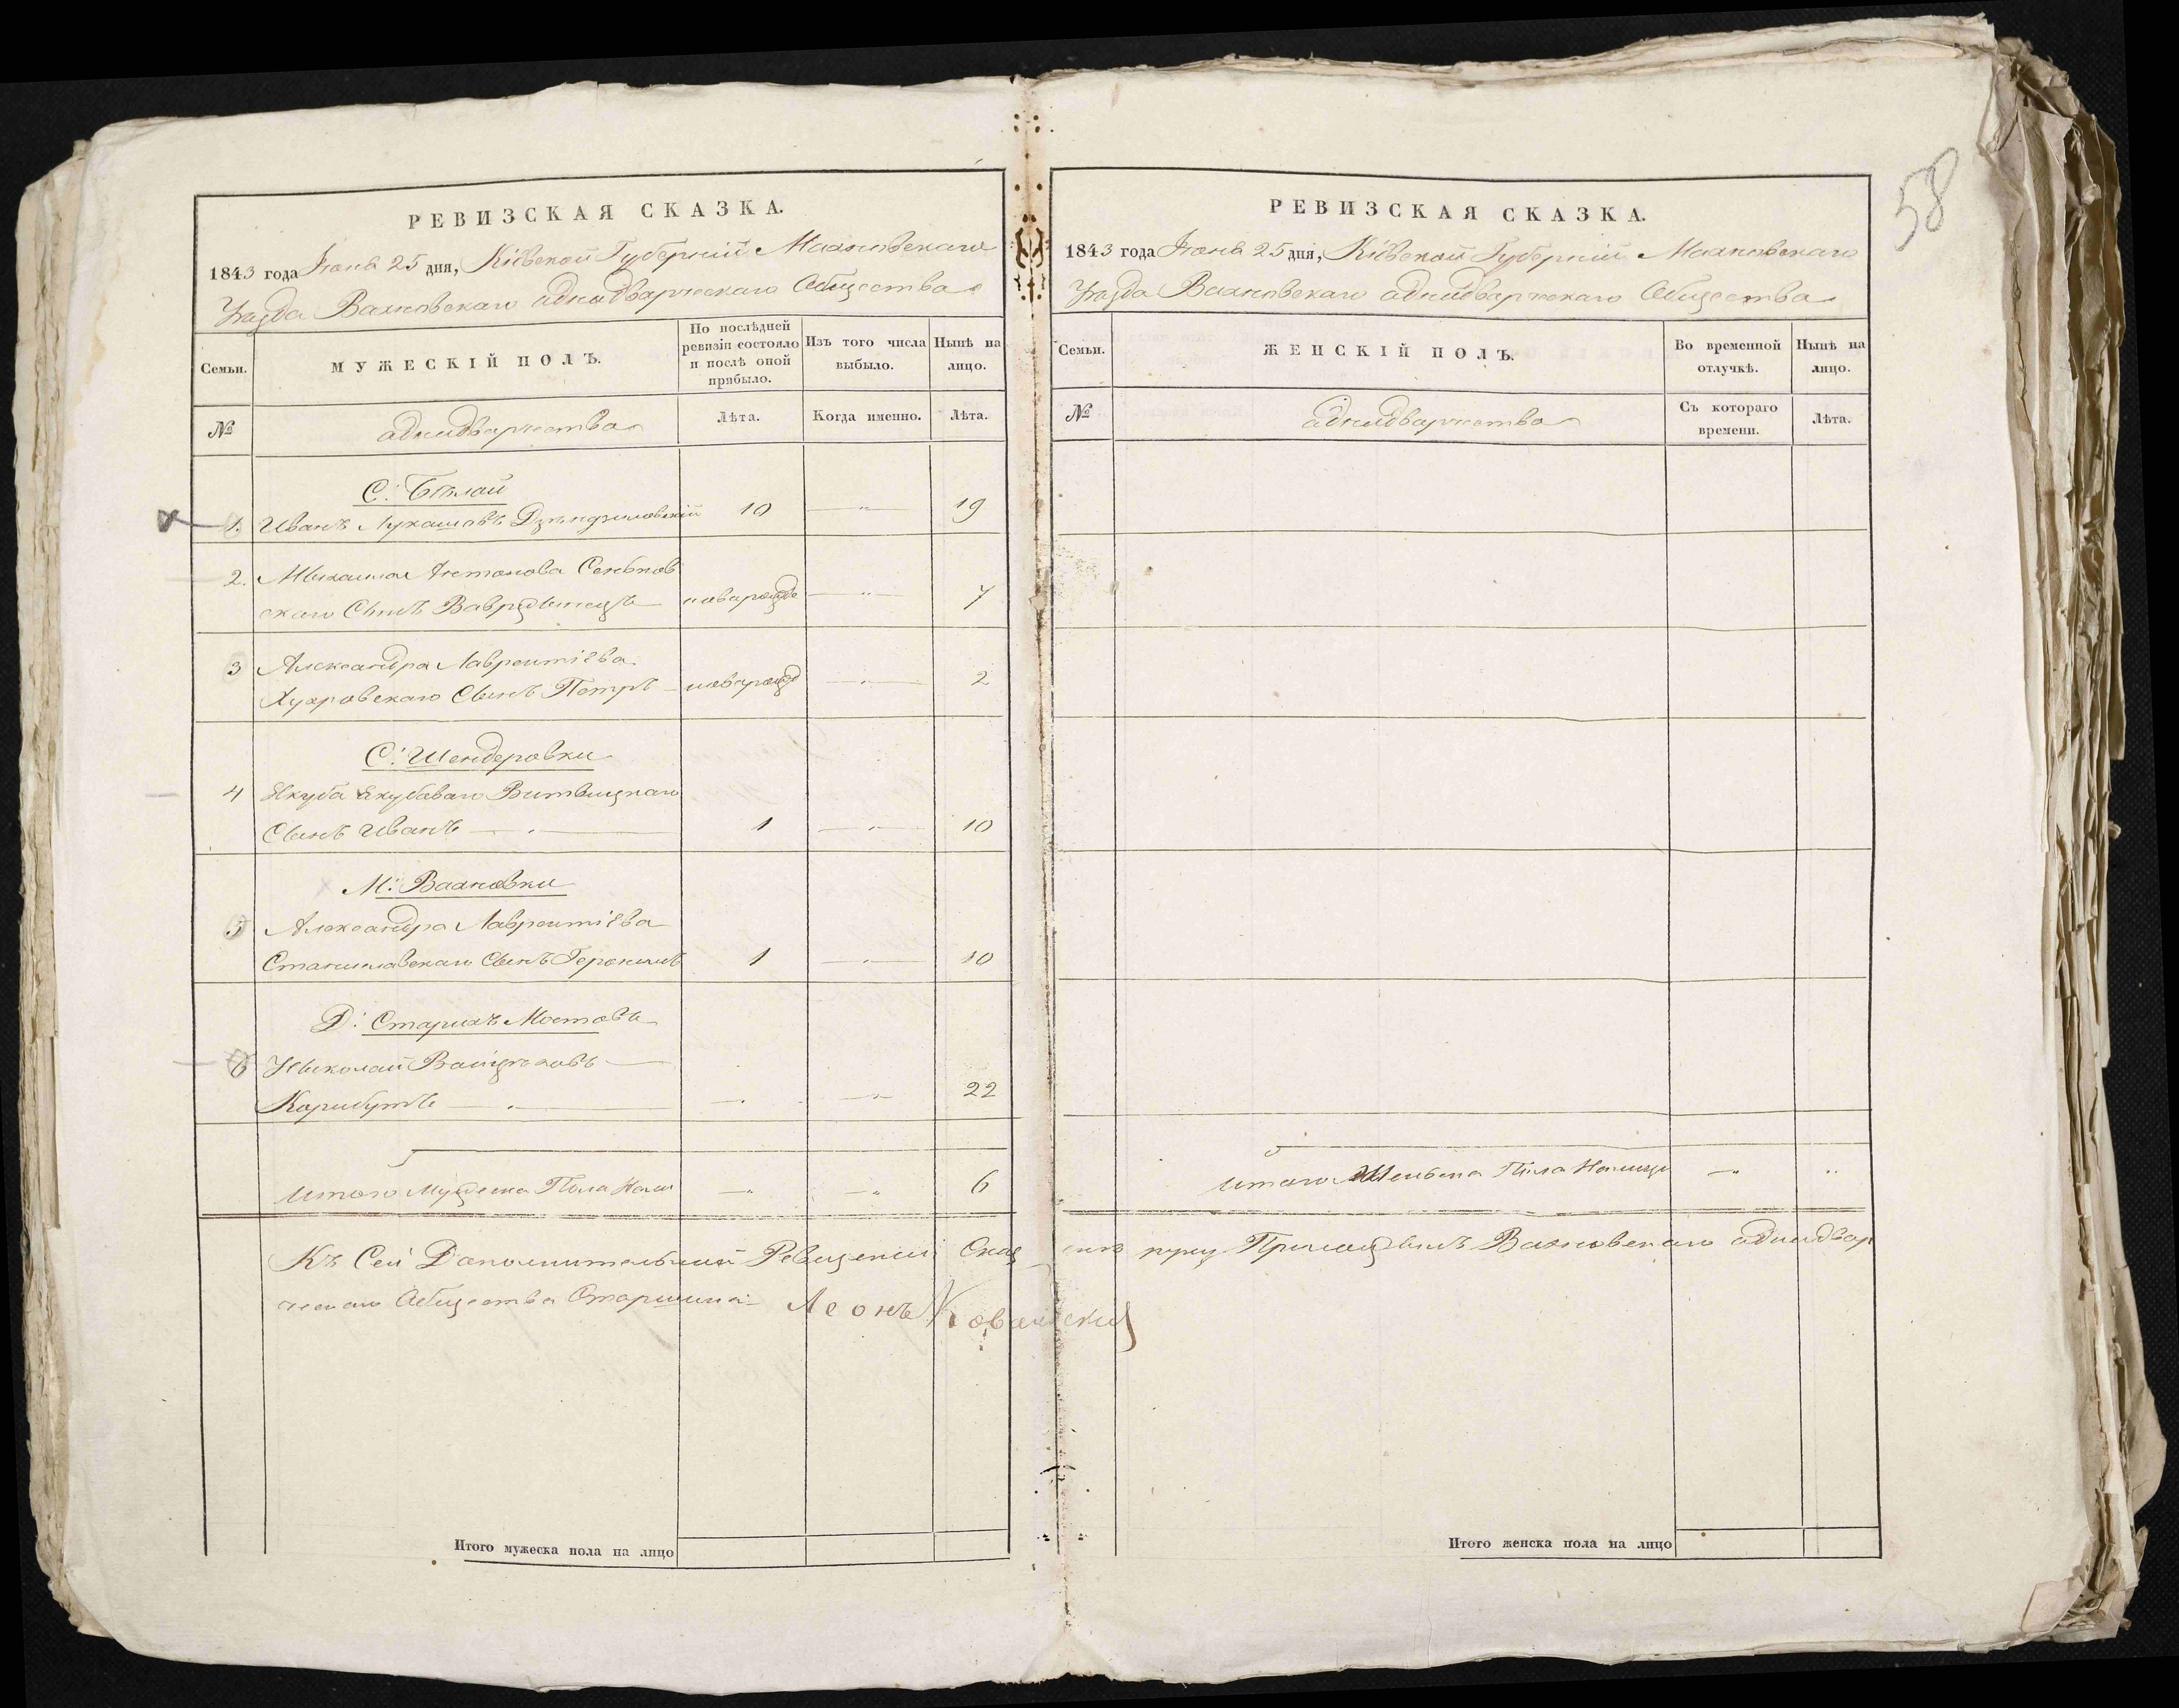 РЕВИЗСКАЯ СКАЗКА.
1843 года Іюня 25 дня, Кіевской Губерніи Махновскаго
Уѣзда Вахновскаго аднидварческаго Общества
Семьи.
МУЖЕСКІЙ ПОЛЪ.
По послѣдней
ревизіи состояло
и послѣ оной
прибыло.
Изъ того числа
выбыло.
Нынѣ на
лицо.
№
аднидварчества
Лѣта.
Когда именно.
Лѣта.
С: Бѣлой
1. Иванъ Лукашовъ 10 19
2. Михаила Антонова
скаго Сынъ новарожде 7
3 Александра Лаврентіева
Сынъ Петръ новарожд 2
С: Шендеровки
4 Якуба Якубова Витвицкаго
Сынъ Иванъ 1 10
М: Вахновки
5 Александра Лаврентіева
Станиславскаго Сынъ Геронимъ 1 10
Д: Старихъ Мостовъ
6 Николай Войцеховъ
Карибутъ 22
Итого Мужеска Пола На 6
Къ Сей Дополнительной Ревизской Сказ
ческаго Общества Старшина Леонъ
Итого мужеска пола на лицо
58
РЕВИЗСКАЯ СКАЗКА.
1843 года Іюня 25 дня, Кіевской Губерніи Махновскаго
Уѣзда Вахновскаго аднидварческаго Общества
Семьи.
ЖЕНСКІЙ ПОЛЪ.
Во временной
отлучкѣ.
Нынѣ на
лицо.
№
аднидварчества
Съ котораго
времени.
Лѣта.
Итого Женска Пола Налицо
руку Приложилъ Вахновскаго аднидвар
Итого женска пола на лицо